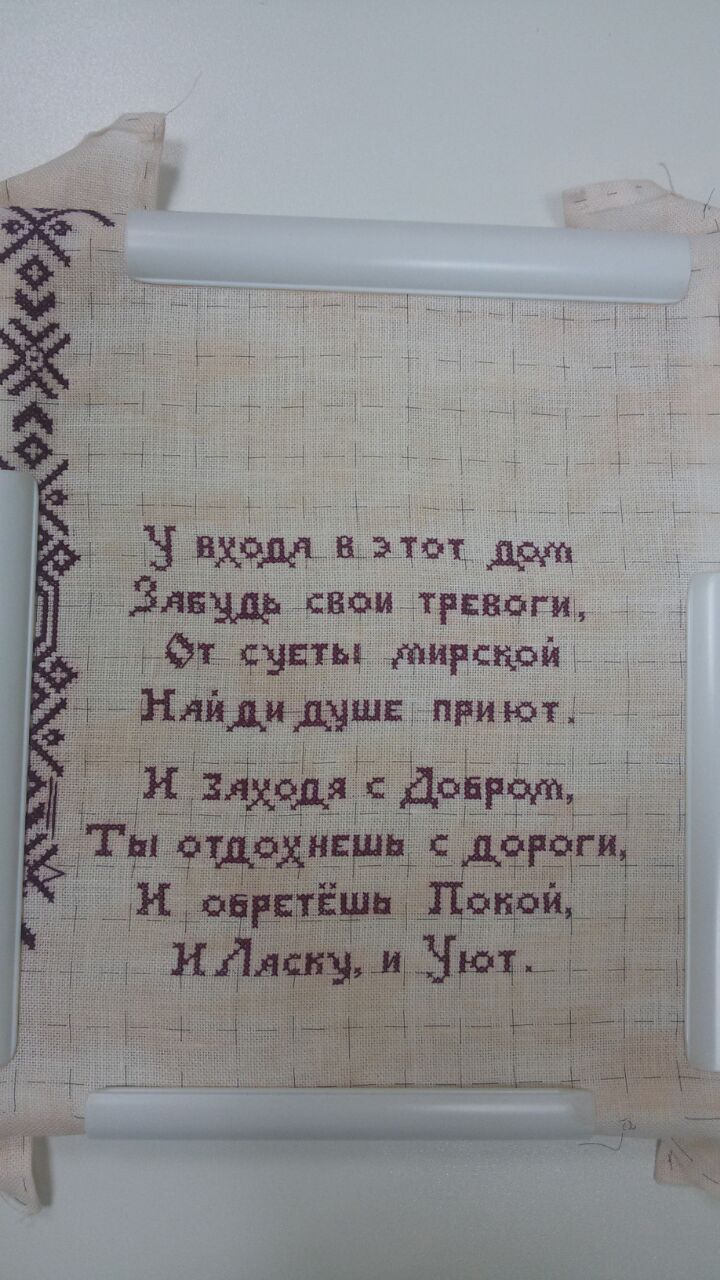 У входа в этот дом
Забудь свои тревоги,
От суеты мирской
Найди душе приют.
И заходя с Добром,
Ты отдохнешь с дороги,
И обретёшь Покой,
И Ласку, и Уют.